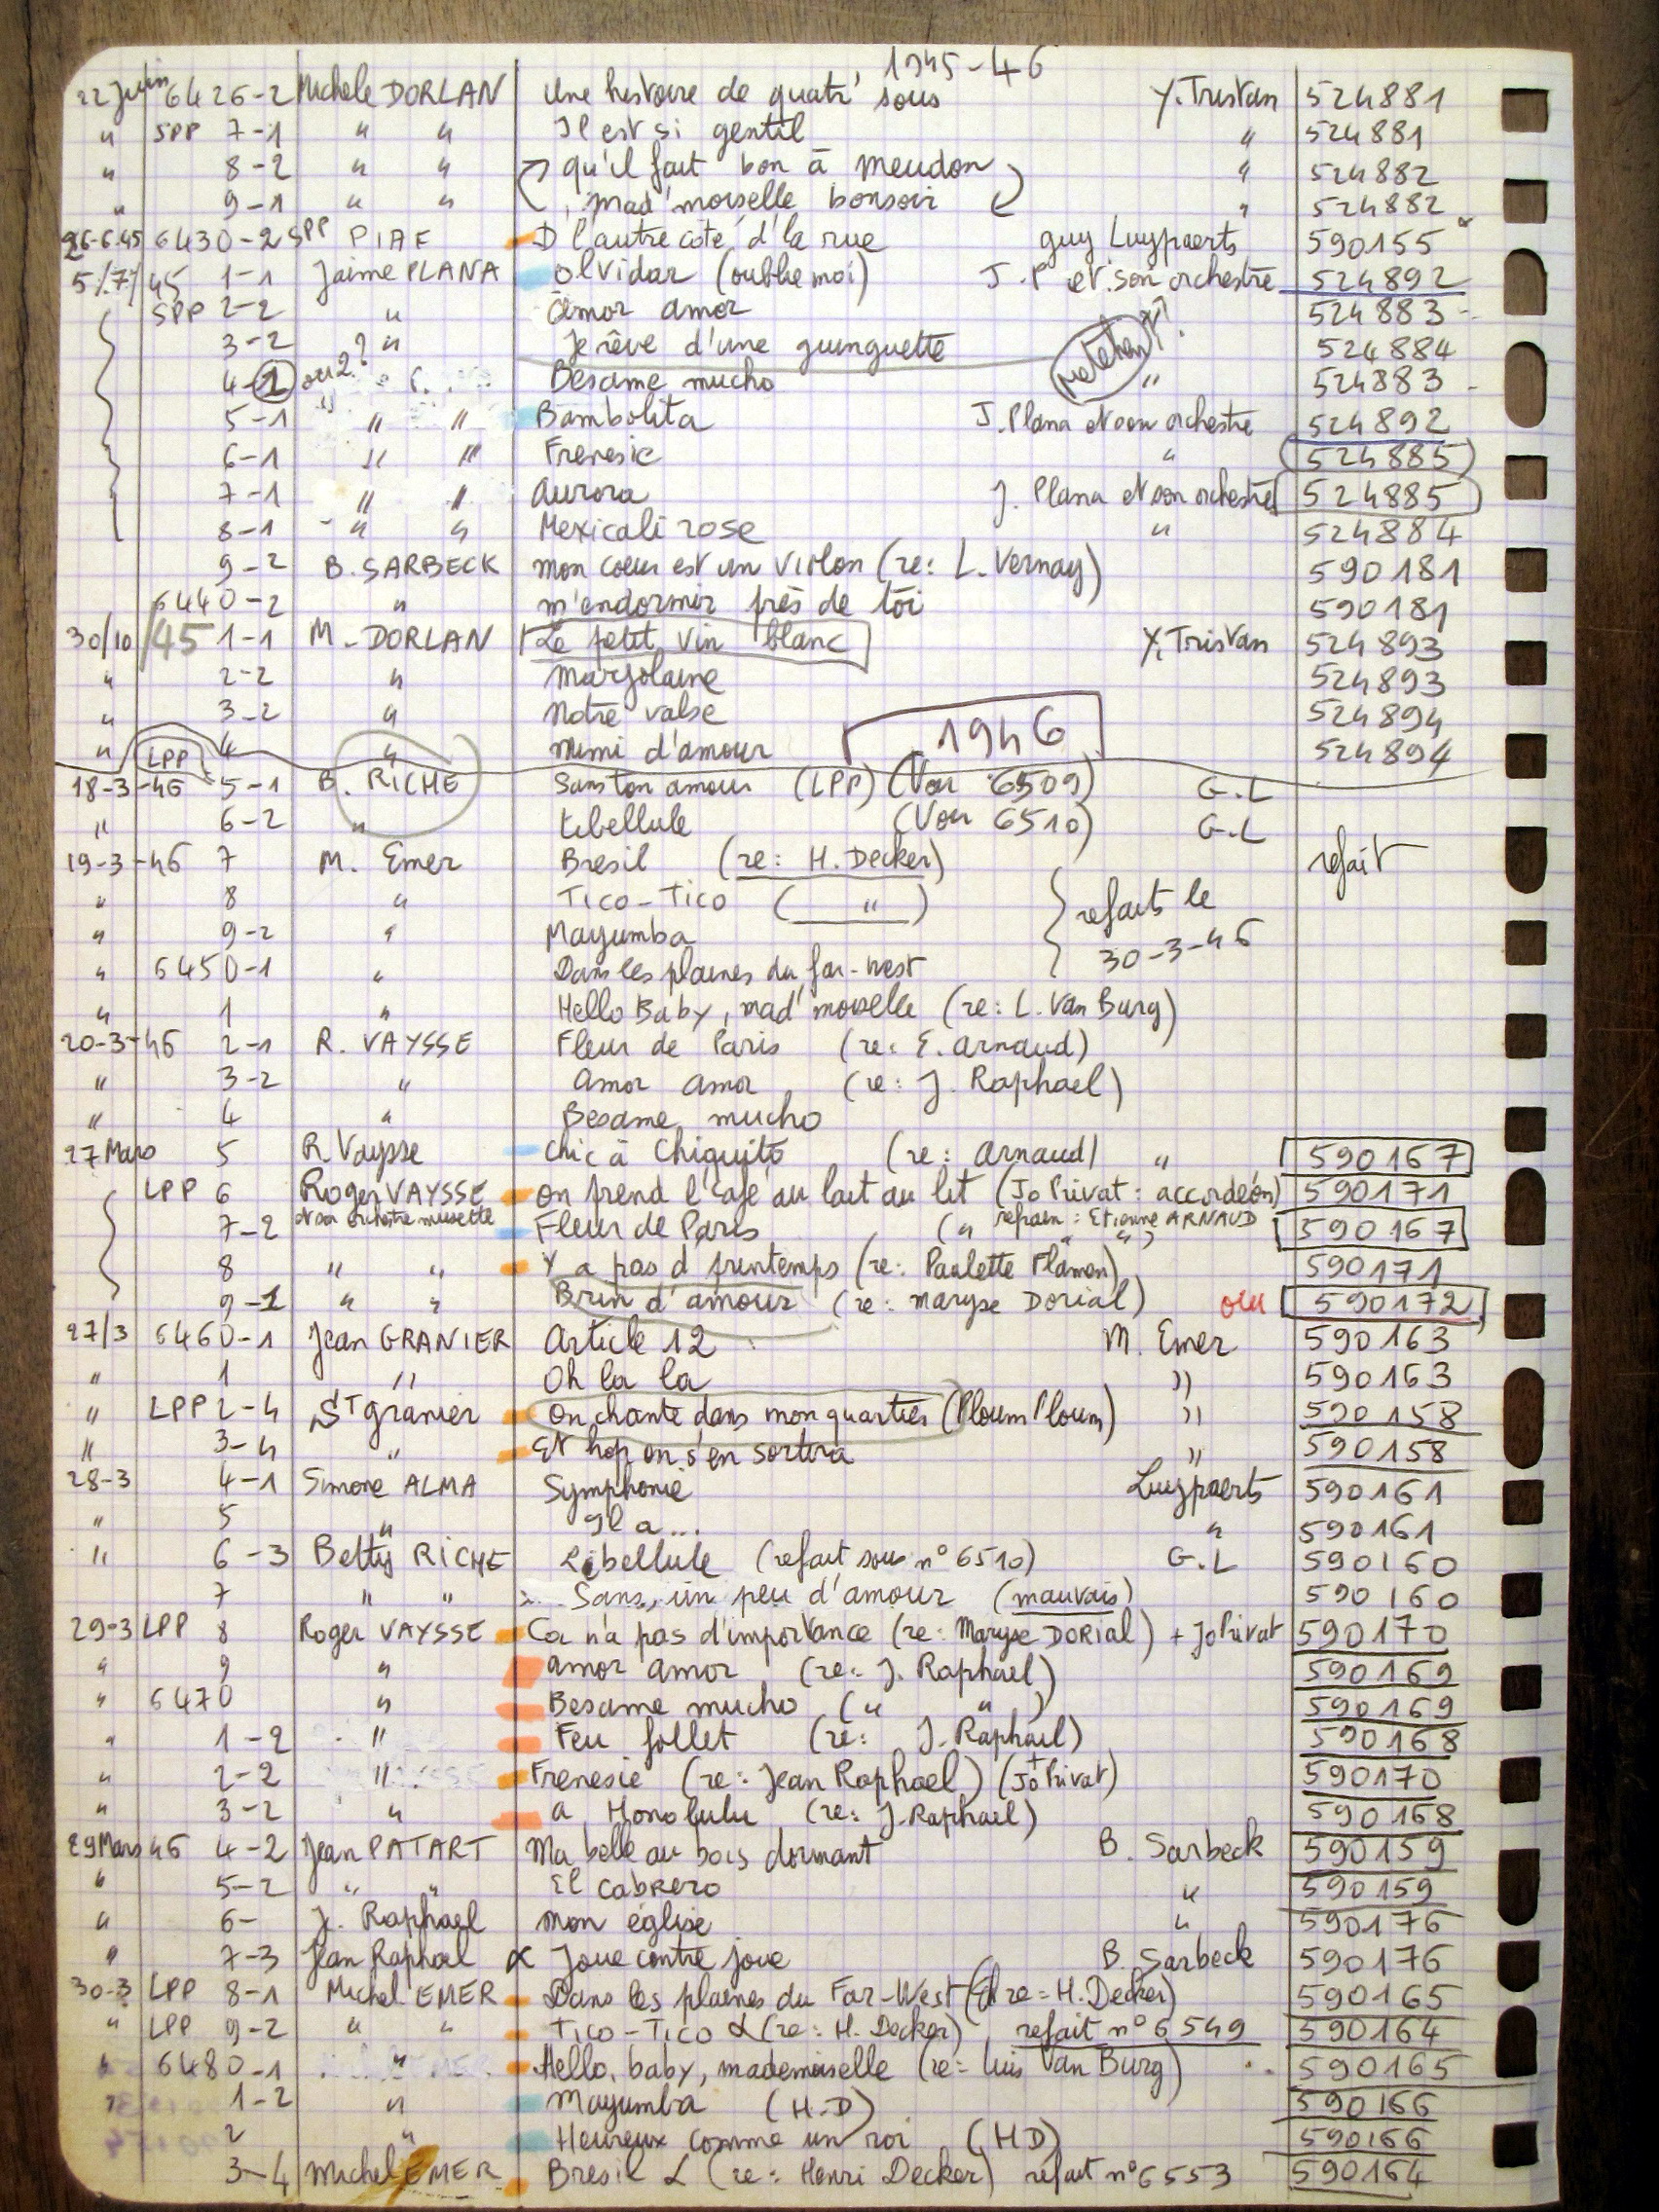 1945-46
22 Juin 6426-2 Michele DORLAN Une histoire de quatr' sous Y. Tristan 524881
" SPP 7-1 " " Il est si gentil " 524881
" 8-2 " " qu'il fait bon à Meudon " 524882
" 9-1 " " mad'moiselle bonsoir " 524882
26-6-45 6430-2 SPP PIAF D l'autre coté d'la rue guy Luypaerts 590155
5/7/45 1-1 Jaime PLANA Olvidar (oublie moi) J.P et son orchestre 524892
SPP 2-2 " Amor amor 524883
3-2 " Je rêve d'une guinguette 524884
4-2 ou 2? Besame mucho " 524883
5-1 " " Bambolita J. Plana et son orchestre 524892
6-1 " " Frenesie " 524885
7-1 " " Aurora J. Plana et son orchestre 524885
8-1 " " Mexicali rose " 524884
9-2 B. SARBECK mon coeur est un violon (re: L. Vernay) 590181
6440-2 " m'endormir près de toi 590181
30/10/45 1-1 M. DORLAN Le petit vin blanc Y. Tristan 524893
" 2-2 " Marjolaine 524893
" 3-2 " Notre valse 524894
" 4 " Mimi d'amour 524894
1946
LPP
18-3-46 5-1 B. RICHE Sans ton amour (LPP) (Voir 6509) G.L
" 6-2 " Libellule (Voir 6510) G.L
19-3-46 7 M. Emer Bresil (re: H. Decker) refait
" 8 " Tico-Tico ( " )
" 9-2 " Mayumba refaits le 30-3-46
" 6450-1 " Dans les plaines du far-west
" 1 " Hello Baby, mad'moiselle (re: L. Van Burg)
20-3-46 2-1 R. VAYSSE Fleur de Paris (re: E. Arnaud)
" 3-2 " Amor amor (re: J. Raphael)
" 4 " Besame mucho
27 Mars 5 R. Vaysse Chic à Chiquito (re: Arnaud) " 590167
LPP 6 Roger VAYSSE On prend l'café au lait au lit (Jo Privat: accordéon) 590171
et son orchestre musette
7-2 Fleur de Paris (" refrain: Etienne ARNAUD " ") 590167
8 " " Y a pas d'printemps (re: Paulette Flamen) 590171
9-1 " " Brin d'amour (re: Maryse Dorial) ou 590172
27/3 6460-1 Jean GRANIER Article 12 M. Emer 590163
" 1 " Oh la la " 590163
" LPP 2-4 St granier On chante dans mon quartier (Ploum Ploum) " 590158
" 3-4 " Et hop on s'en sortira " 590158
28-3 4-1 Simone ALMA Symphonie Luypaerts 590161
" 5 " Il a... " 590161
" 6-3 Betty RICHE Libellule (refait sous n° 6510) G.L 590160
7 " " Sans, un peu d'amour (mauvais) 590160
29-3 LPP 8 Roger VAYSSE Ca n'a pas d'importance (re: Maryse DORIAL) + Jo Privat 590170
" 9 " Amor amor (re: J. Raphael) 590169
" 6470 " Besame mucho (" ") 590169
" 1-2 " Feu follet (re: J. Raphael) 590168
" 2-2 " Frenesie (re: Jean Raphael) (+ Jo Privat) 590170
" 3-2 " a Honolulu (re: J. Raphael) 590168
29 Mars 46 4-2 Jean PATART Ma belle au bois dormant B. Sarbeck 590159
" 5-2 " " El Cabrero " 590159
" 6- J. Raphael Mon église " 590176
" 7-3 Jean Raphael Joue contre joue B. Sarbeck 590176
30-3 LPP 8-1 Michel EMER Dans les plaines du Far-West (Et re= H. Decker) 590165
" LPP 9-2 " " Tico-Tico (re: H. Decker) refait n° 6549 590164
" 6480-1 " Hello, baby, mademoiselle (re= Luis Van Burg) 590165
" 1-2 " Mayumba (H-D) 590166
2 " Heureux comme un roi (HD) 590166
3-4 Michel EMER Bresil (re: Henri Decker) refait n° 6553 590164